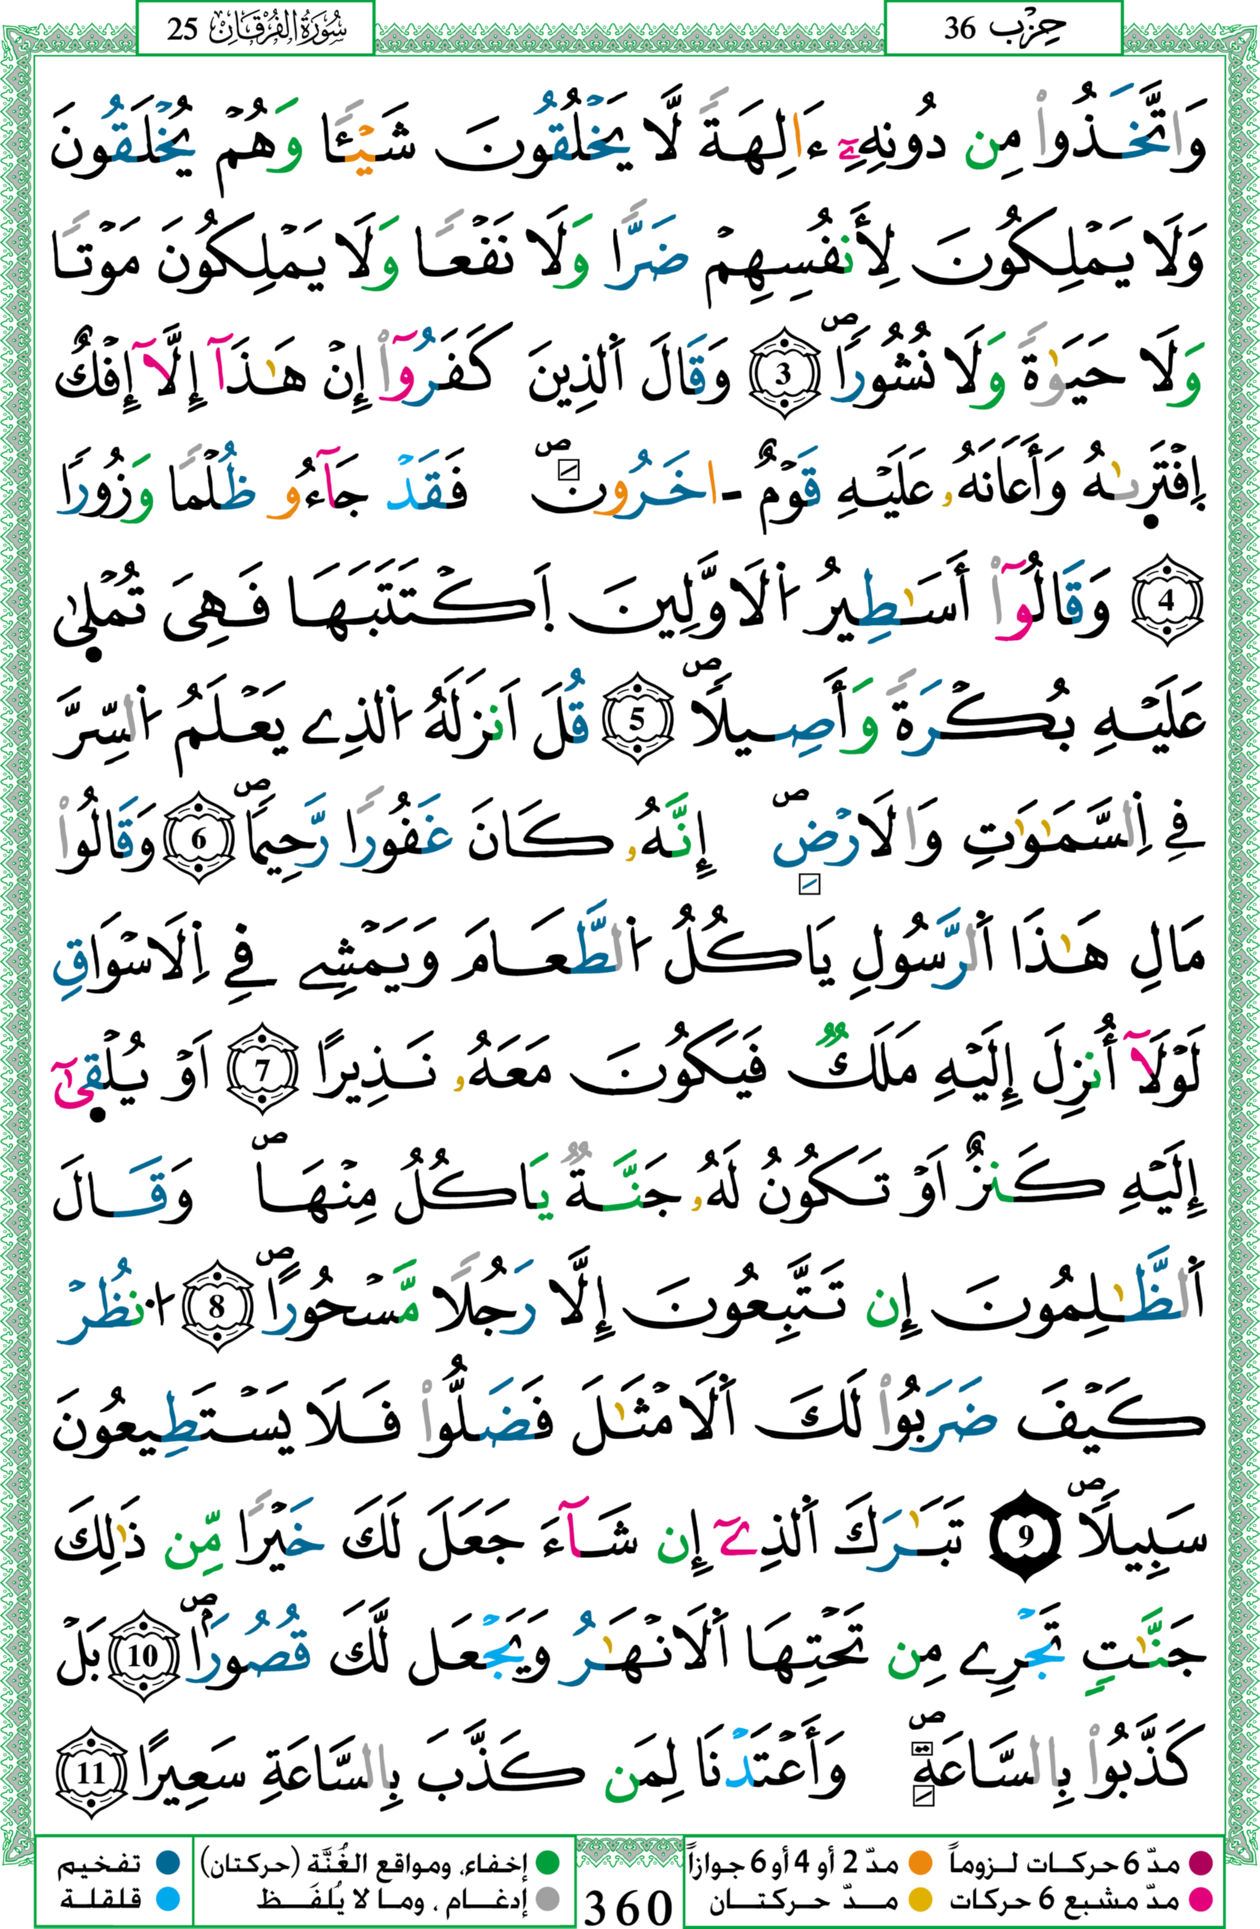 سُورَةُ الفُرْقَانِ 25
حِزْب 36
وَاتَّخَذُواْ مِن دُونِهِۦٓ ءَالِهَةً لَّا يَخْلُقُونَ شَيْـًٔا وَهُمْ يُخْلَقُونَ
وَلَا يَمْلِكُونَ لِأَنفُسِهِمْ ضَرًّا وَلَا نَفْعًا وَلَا يَمْلِكُونَ مَوْتًا
وَلَا حَيَوٰةً وَلَا نُشُورًا 3 وَقَالَ اَلذِينَ كَفَرُوٓاْ إِنْ هَـٰذَآ إِلَّآ إِفْكٌ
اِفْتَرِىٰهُ وَأَعَانَهُۥ عَلَيْهِ قَوْمٌ ـ اخَرُونَ ص فَقَدْ جَآءُو ظُلْمًا وَزُورًا
4 وَقَالُوٓاْ أَسَـٰطِيرُ اُلَاوَّلِينَ اَكْتَتَبَهَا فَهِىَ تُمْلِىٰ
عَلَيْهِ بُكْرَةً وَأَصِيلًا ص 5 قُلَ اَنزَلَهُ اُلذِے يَعْلَمُ اُلسِّرَّ
فِے اِلسَّمَـٰوَٰتِ وَالَارْضِ ص إِنَّهُۥ كَانَ غَفُورًا رَّحِيمًا ص 6 وَقَالُواْ
مَالِ هَـٰذَا اَلرَّسُولِ يَاكُلُ اُلطَّعَامَ وَيَمْشِے فِے اِلَاسْوَاقِ
لَوْلَآ أُنزِلَ إِلَيْهِ مَلَكٌ فَيَكُونَ مَعَهُۥ نَذِيرًا 7 اَوْ يُلْقِىٰٓ
إِلَيْهِ كَنزٌ اَوْ تَكُونُ لَهُۥ جَنَّةٌ يَاكُلُ مِنْهَا ص وَقَالَ
اَلظَّـٰلِمُونَ إِن تَتَّبِعُونَ إِلَّا رَجُلًا مَّسْحُورًا ص 8 اُنظُرْ
كَيْفَ ضَرَبُواْ لَكَ اَلَامْثَـٰلَ فَضَلُّواْ فَلَا يَسْتَطِيعُونَ
سَبِيلًا ص 9 تَبَـٰرَكَ اَلذِےٓ إِن شَآءَ جَعَلَ لَكَ خَيْرًا مِّن ذَٰلِكَ
جَنَّـٰتٍ تَجْرِے مِن تَحْتِهَا اَلَانْهَـٰرُ وَيَجْعَل لَّكَ قُصُورًا ص 10 بَلْ
كَذَّبُواْ بِالسَّاعَةِ ص وَأَعْتَدْنَا لِمَن كَذَّبَ بِالسَّاعَةِ سَعِيرًا 11
مدّ 6 حركات لـزوماً مدّ 2 أو 4 أو 6 جوازاً إخفاء، ومواقع الغُنَّة (حركتان) تفخيم
مدّ مشبع 6 حركات مـدّ حركتـان إدغـام ، ومـا لا يُلفَـظ قلقلة
360